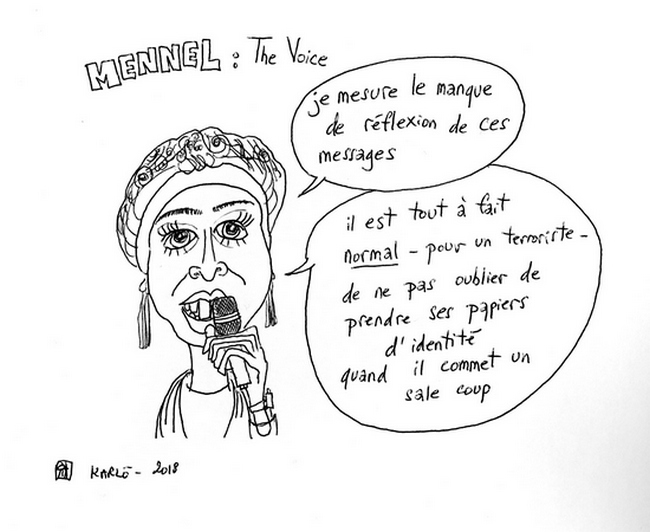 MENNEL : The Voice
je mesure le manque
de réflexion de ces
messages
il est tout à fait
normal - pour un terroriste -
de ne pas oublier de
prendre ses papiers
d'identité
quand il commet un
sale coup
KARLÖ - 2018